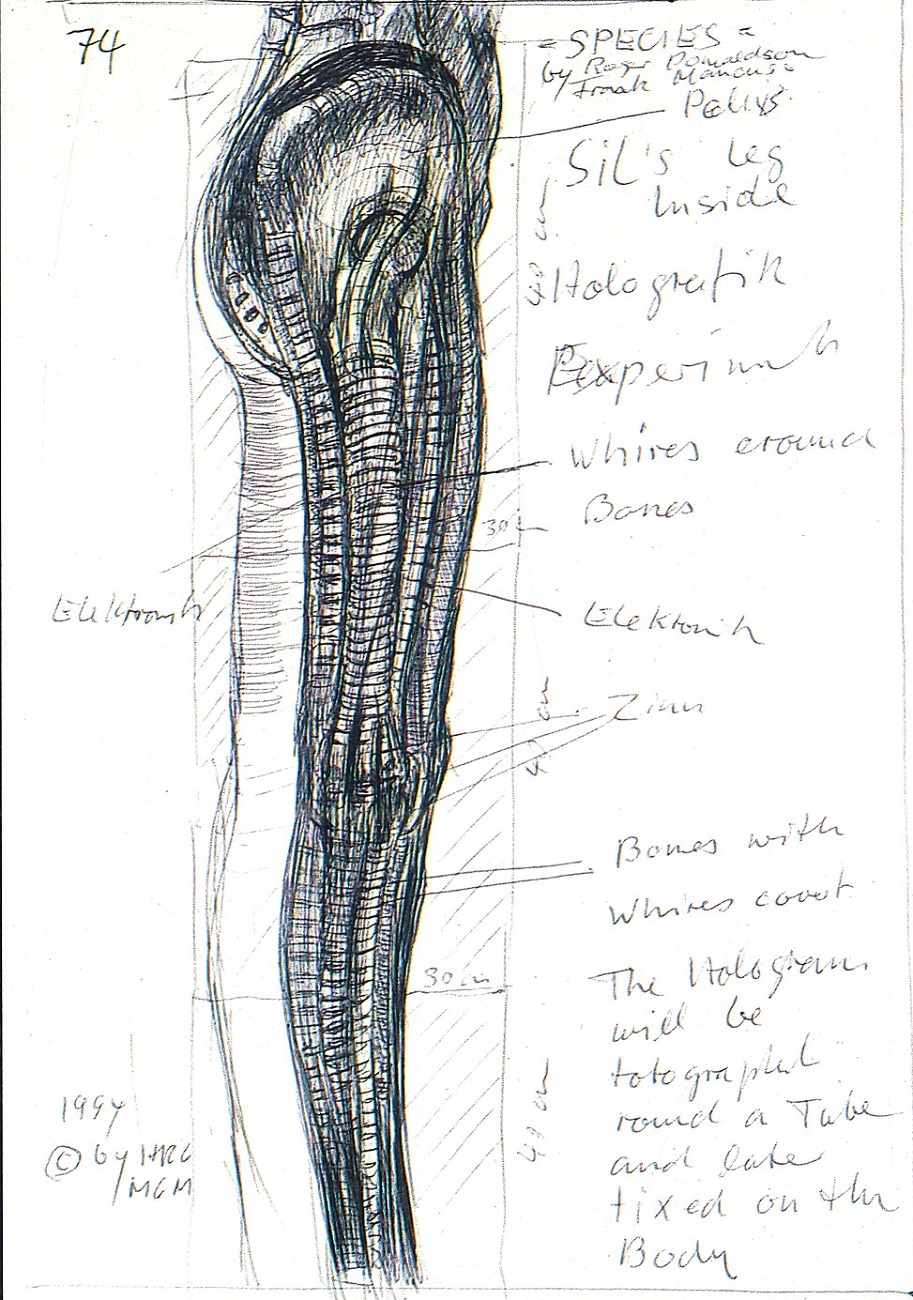 74
= SPECIES =
by Roger Donaldson
/ Frank Mancuso
Pelvis
Sil's leg
Inside
40 cm
Holografik
Experiment
Whires eround
Bones
30
Elektronik
Elektronik
Zinn
40 cm
Bones with
Whires covert
30 cm
The Hologram
will be
fotographed
round a Tube
40 cm
and later
fixed on the
Body
1994
© by HRG
/MGM